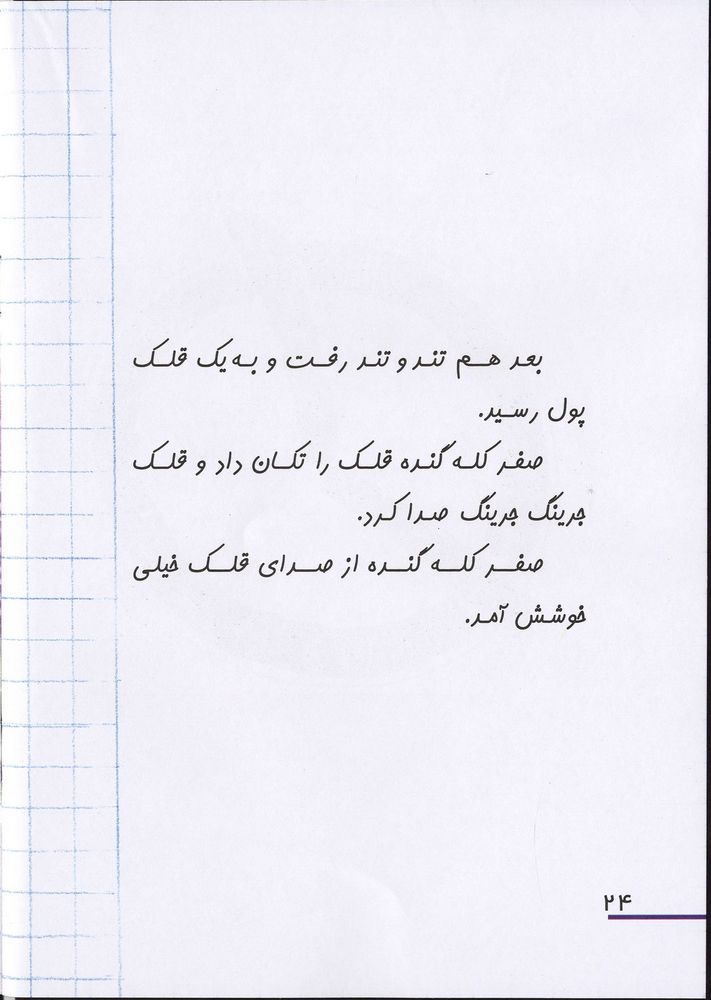 بعد هم تند و تند رفت و به یک قلک
پول رسید.
صفر کله گنده قلک را تکان داد و قلک
جرینگ جرینگ صدا کرد.
صفر کله گنده از صدای قلک خیلی
خوشش آمد.
۲۴